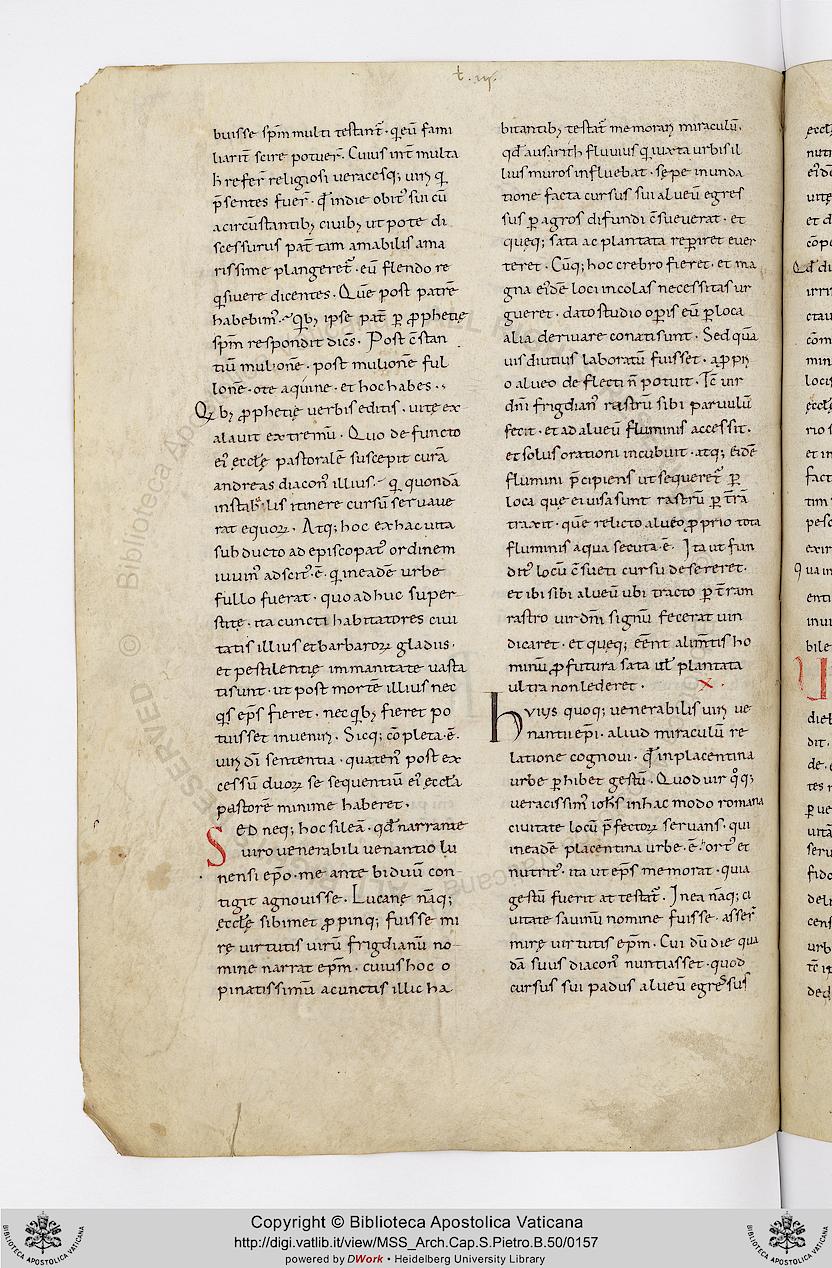 t. iii.
buisse sp̄m multi testant̄. q eū fami
liarit̄ scire potuer̄. Cuius int̄ multa
h̄ refer̄ religiosi veracesq; uiri q
p̄sentes fuer̄. qd̄ in die obit' sui cū
a circūstantib; ciuib; ut pote di
scessurus pat̄ tam amabilis ama
rissime plangeret̄. eū flendo re
qsiuere dicentes. Quē post patrē
habebim'. Qb; ipse pat̄ ꝑ ꝓphetię
sp̄m respondit dicēs. Post c̄stan
tiū mulionē. post mulionē ful
lonē. o te aquine. et hoc habes.
Qb; ꝓphetię uerbis editis. uitę ex
alauit extremū. Quo defuncto
ei' ęccłę pastoralē suscepit curā
andreas diacon' illius. q quondā
in stabulis itinere cursū seruaue
rat equoꝝ. Atq; hoc ex hac uita
subducto ad episcopat' ordinem
iuuin' adscit'. ē. q in eadē urbe
fullo fuerat. quo adhuc super
stite. ita cuncti habitatores ciui
tatis illius et barbaroꝝ gladiis.
et pestilentię immanitate uasta
ti sunt. ut post mortē illius nec
qs ep̄s fieret. nec qb; fieret po
tuisset inueniri. Sicq; cōpleta. ē.
uiri dī sententia. quaten' post ex
cessū duoꝝ se sequentiū ei' ęccła
pastorē minime haberet.
Sed neq; hoc sileā. qd̄ narrante
uiro uenerabili uenantio lu
nensi ep̄o. me ante biduū con
tigit agnouisse. Lucanę nāq;
ęccłę sibimet ꝓpinq; fuisse mi
rę uirtutis uirū frigdianū no
mine narrat ep̄m. cuius hoc o
pinatissimū a cunctis illic ha
bitantib; testat̄ memorari miraculū.
qd̄ ausarith fluuius q iuxta urbis il
lius muros influebat. sępe inunda
tione facta cursus sui alueū egres
sus ꝑ agros difundi c̄sueuerat. et
quęq; sata ac plantata repiret euer
teret. Cūq; hoc crebro fieret. et ma
gna eidē loci incolas necessitas ur
gueret. dato studio opis eū ꝑ loca
alia deriuare conati sunt. Sed quā
uis diutius laboratū fuisset. a ꝓpri
o alueo deflecti n̄ potuit. Tc̄ uir
dn̄i frigdian' rastrū sibi paruulū
fecit. et ad alueū fluminis accessit.
et solus orationi incubuit. atq; eidē
flumini p̄cipiens ut sequeret̄ ꝑ
loca que ei uisa sunt rastrū ꝑ t̄rā
traxit. quē relicto alueo ꝓprio tota
fluminis aqua secuta. ē. Ita ut fun
dit' locū c̄sueti cursu desereret.
et ibi sibi alueū ubi tracto ꝑ t̄ram
rastro uir dn̄i signū fecerat uin
dicaret. et quęq; eēnt alimētis ho
minū ꝓfutura sata ul̄ plantata
ultra non lederet. X.
Huius quoq; uenerabilis uiri ue
nantii ep̄i. aliud miraculū re
latione cognoui. qd̄ in placentina
urbe ꝑhibet gestū. Quod uir qq;
ueracissim' ioh̄s in hac modo romana
ciuitate locū p̄fectoꝝ seruans. qui
in eadē placentina urbe. ē. ort' et
nutrit'. ita ut ep̄s memorat. quia
gestū fuerit attestat̄. In ea nāq; ci
uitate sauinū nomine fuisse. asser̄
mirę uirtutis ep̄m. Cui dū die qua
dā suus diacon' nuntiasset. quod
cursus sui padus alueū egressus
Copyright © Biblioteca Apostolica Vaticana
http://digi.vatlib.it/view/MSS_Arch.Cap.S.Pietro.B.50/0157
powered by DWork • Heidelberg University Library